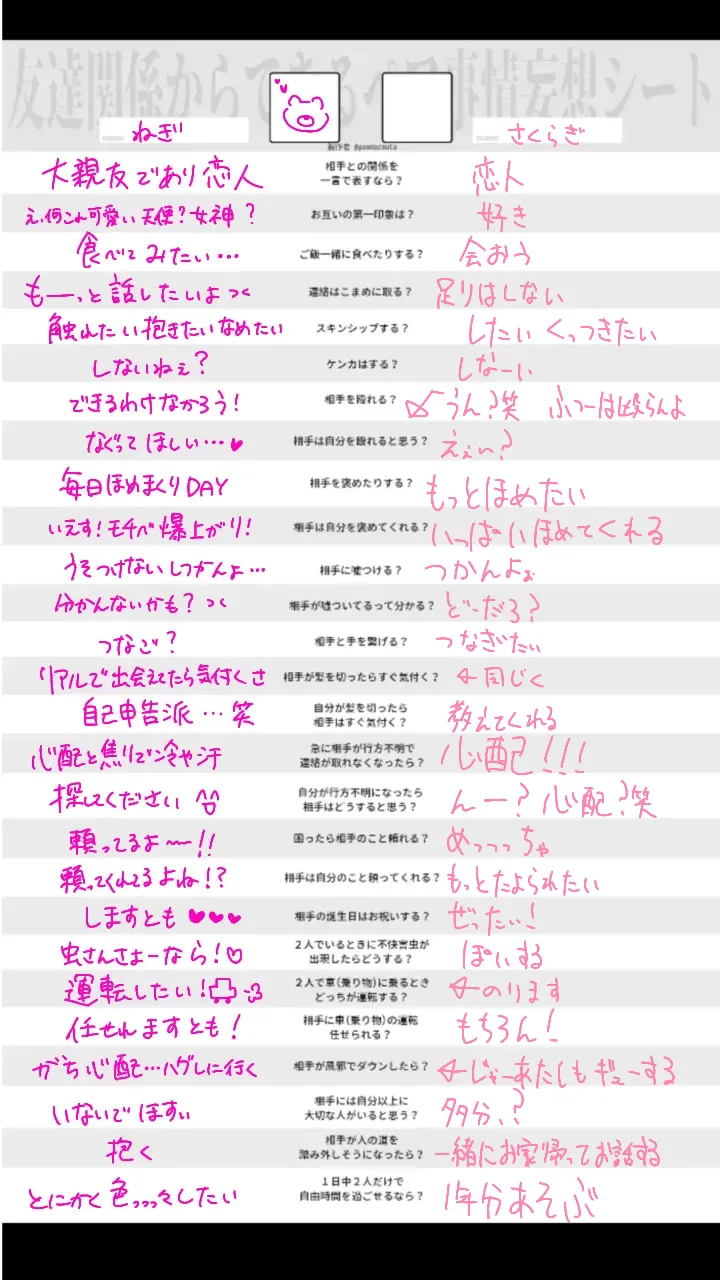 友達関係からできるペア事情妄想シート
ねぎ
さくらぎ
製作者 @pamacovta
大親友であり恋人 相手との関係を一言で表すなら？ 恋人
え、何これ可愛い天使？女神？ お互いの第一印象は？ 好き
食べてみたい… ご飯一緒に食べたりする？ 会おう
もーーっと話したいよつく 連絡はこまめに取る？ 足りはしない
触れたい抱きたいなめたい スキンシップする？ したい くっつきたい
しないねぇ？ ケンカはする？ しなーい
できるわけなかろう！ 相手を殴れる？ うん？笑 ふつーは殴らんよ
なぐってほしい…♥ 相手は自分を殴れると思う？ えぇい？
毎日ほめまくりDAY 相手を褒めたりする？ もっとほめたい
いえす！モチベ爆上がり！ 相手は自分を褒めてくれる？ いっぱいほめてくれる
うそつけないしつかんよ… 相手に嘘つける？ つかんよぉ
分かんないかも？つく 相手が嘘ついてるって分かる？ どーだろ？
つなご？ 相手と手を繋げる？ つなぎたい
リアルで出会えてたら気付くさ 相手が髪を切ったらすぐ気付く？ ←同じく
自己申告派…笑 自分が髪を切ったら相手はすぐ気付く？ 教えてくれる
心配と焦りで冷や汗 急に相手が行方不明で連絡が取れなくなったら？ 心配！！！
探してください 自分が行方不明になったら相手はどうすると思う？ んー？心配？笑
頼ってるよ〜!! 困ったら相手のこと頼れる？ めっっっちゃ
頼ってくれてるよね！？ 相手は自分のこと頼ってくれる？ もっとたよられたい
しますとも♥♥♥ 相手の誕生日はお祝いする？ ぜったい！
虫さんさよーなら！♡ ２人でいるときに不快害虫が出現したらどうする？ ぽいする
運転したい！ ２人で車(乗り物)に乗るときどっちが運転する？ ←のります
任せれますとも！ 相手に車(乗り物)の運転任せられる？ もちろん！
がち心配…ハグしに行く 相手が風邪でダウンしたら？ ←じゃーあたしもギューする
いないでほすぃ 相手には自分以上に大切な人がいると思う？ 多分、？
抱く 相手が人の道を踏み外しそうになったら？ 一緒にお家帰ってお話する
とにかく色っっっ々したい １日中２人だけで自由時間を過ごせるなら？ 1年分あそぶ